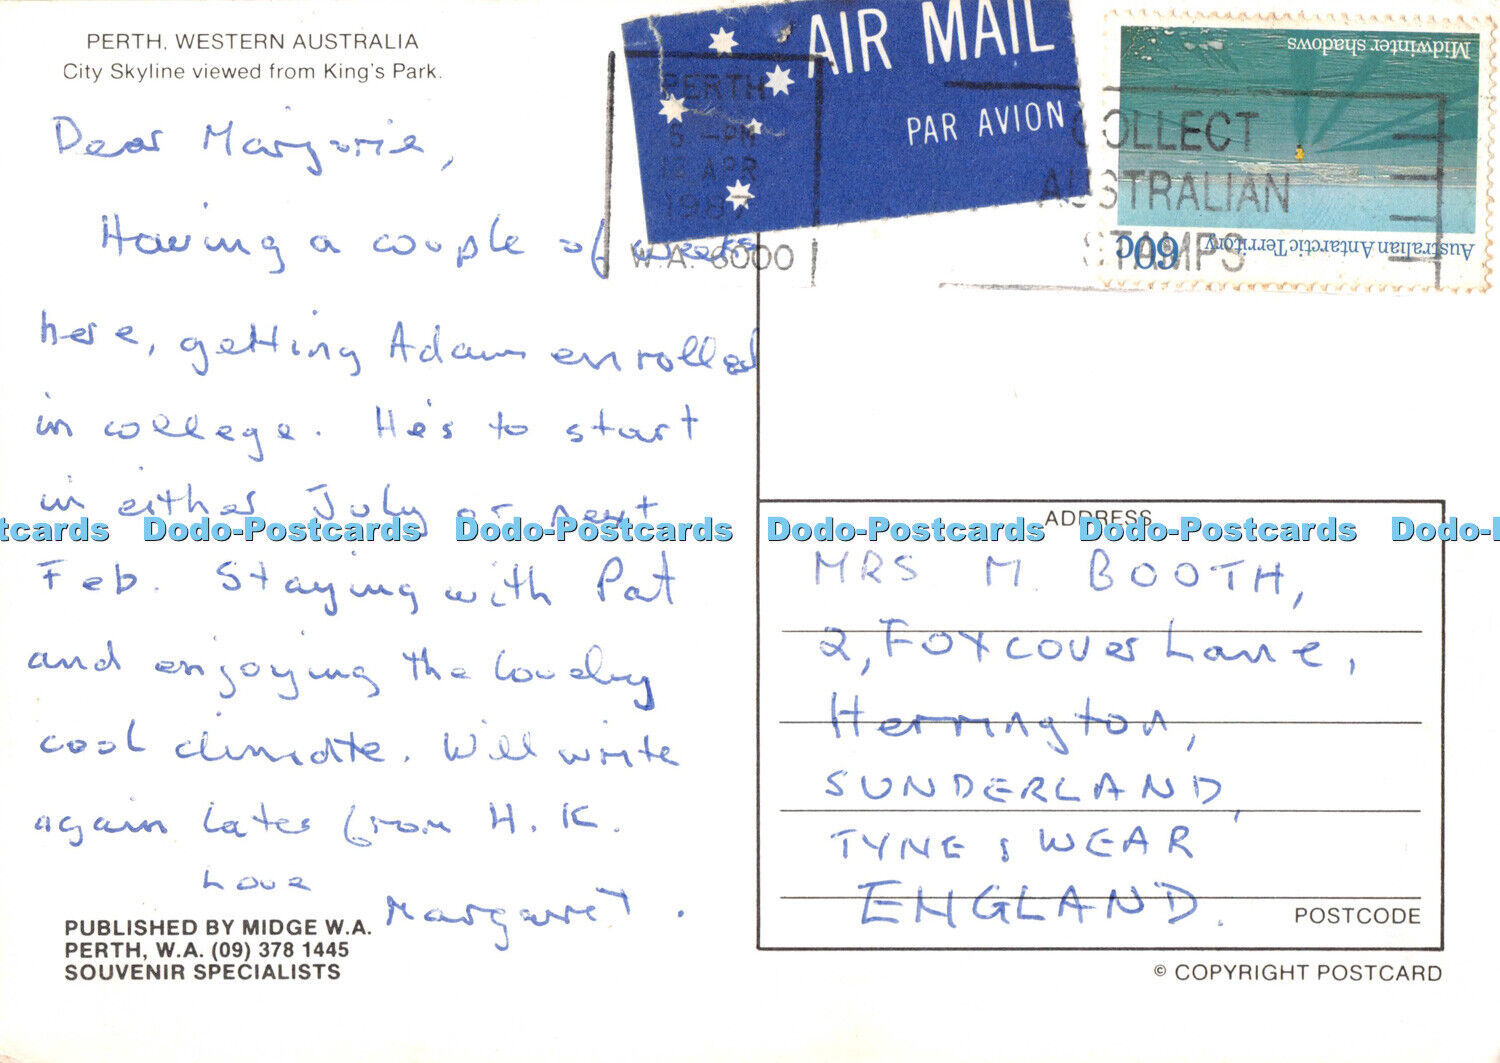 PERTH, WESTERN AUSTRALIA
City Skyline viewed from King's Park.
Dear Marjorie,
Having a couple of weeks
here, getting Adam enrolled
in college. He's to start
in either July or next
Feb. Staying with Pat
and enjoying the lovely
cool climate. Will write
again later from H.K.
Love
Margaret.
PUBLISHED BY MIDGE W.A.
PERTH, W.A. (09) 378 1445
SOUVENIR SPECIALISTS
AIR MAIL
PAR AVION
PERTH
6 -PM
12 APR
1987
W.A. 6000
COLLECT
AUSTRALIAN
STAMPS
Midwinter shadows
Australian Antarctic Territory
60c
Dodo-Postcards Dodo-Postcards Dodo-Postcards Dodo-Postcards
ADDRESS
MRS M. BOOTH,
2, Foxcover Lane,
Herrington,
SUNDERLAND,
TYNE & WEAR
ENGLAND.
POSTCODE
© COPYRIGHT POSTCARD